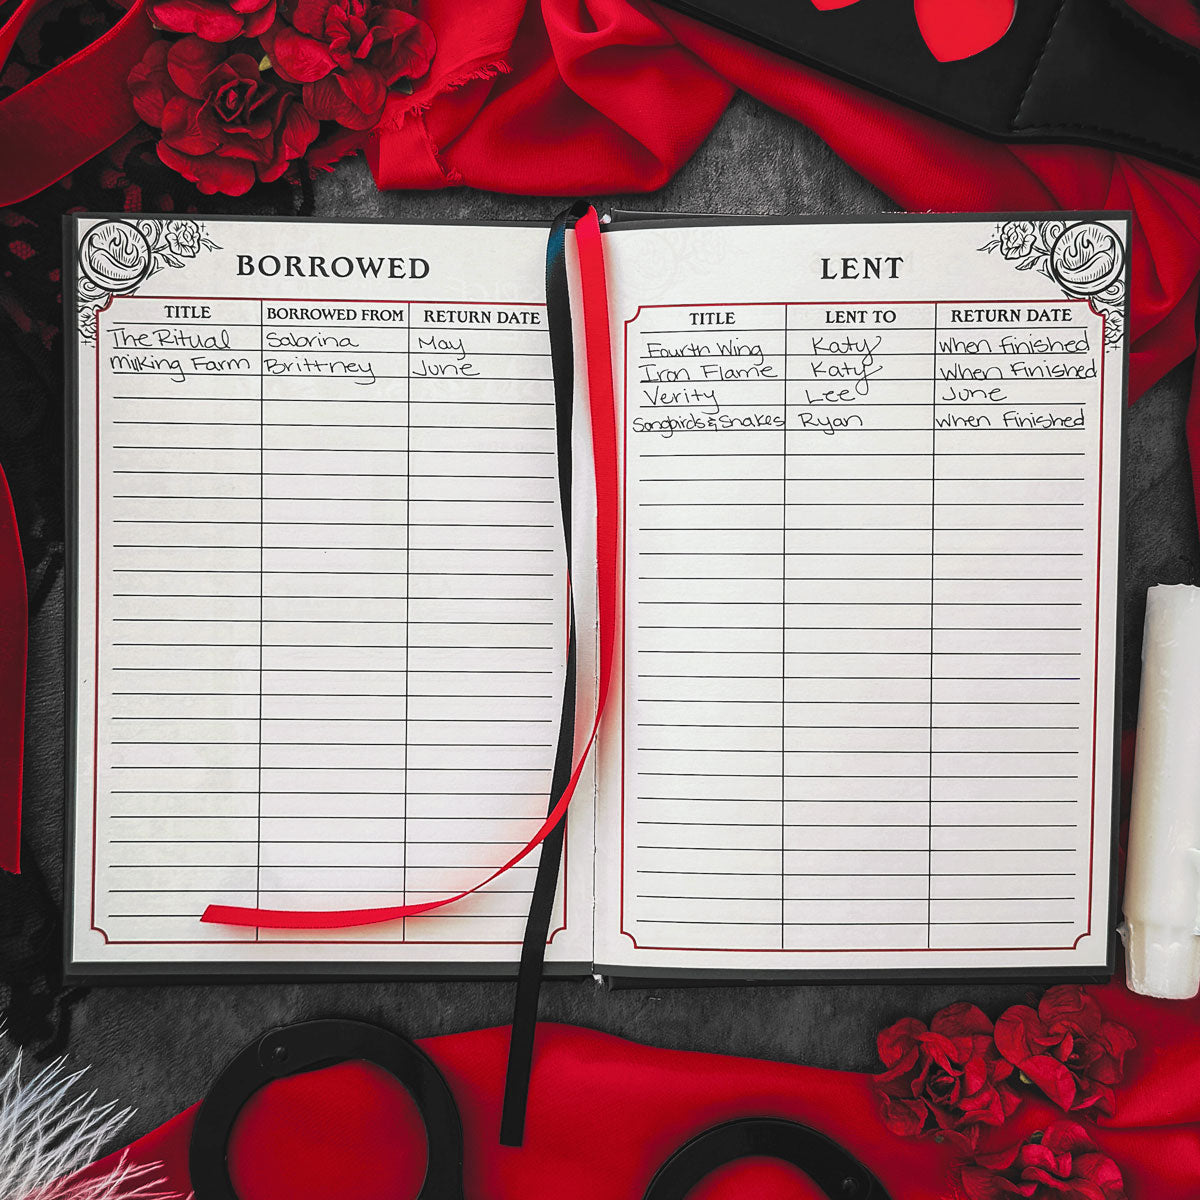 BORROWED
TITLE BORROWED FROM RETURN DATE
The Ritual Sabrina May
Milking Farm Brittney June
LENT
TITLE LENT TO RETURN DATE
Fourth Wing Katy When Finished
Iron Flame Katy When Finished
Verity Lee June
Songbirds & Snakes Ryan When Finished